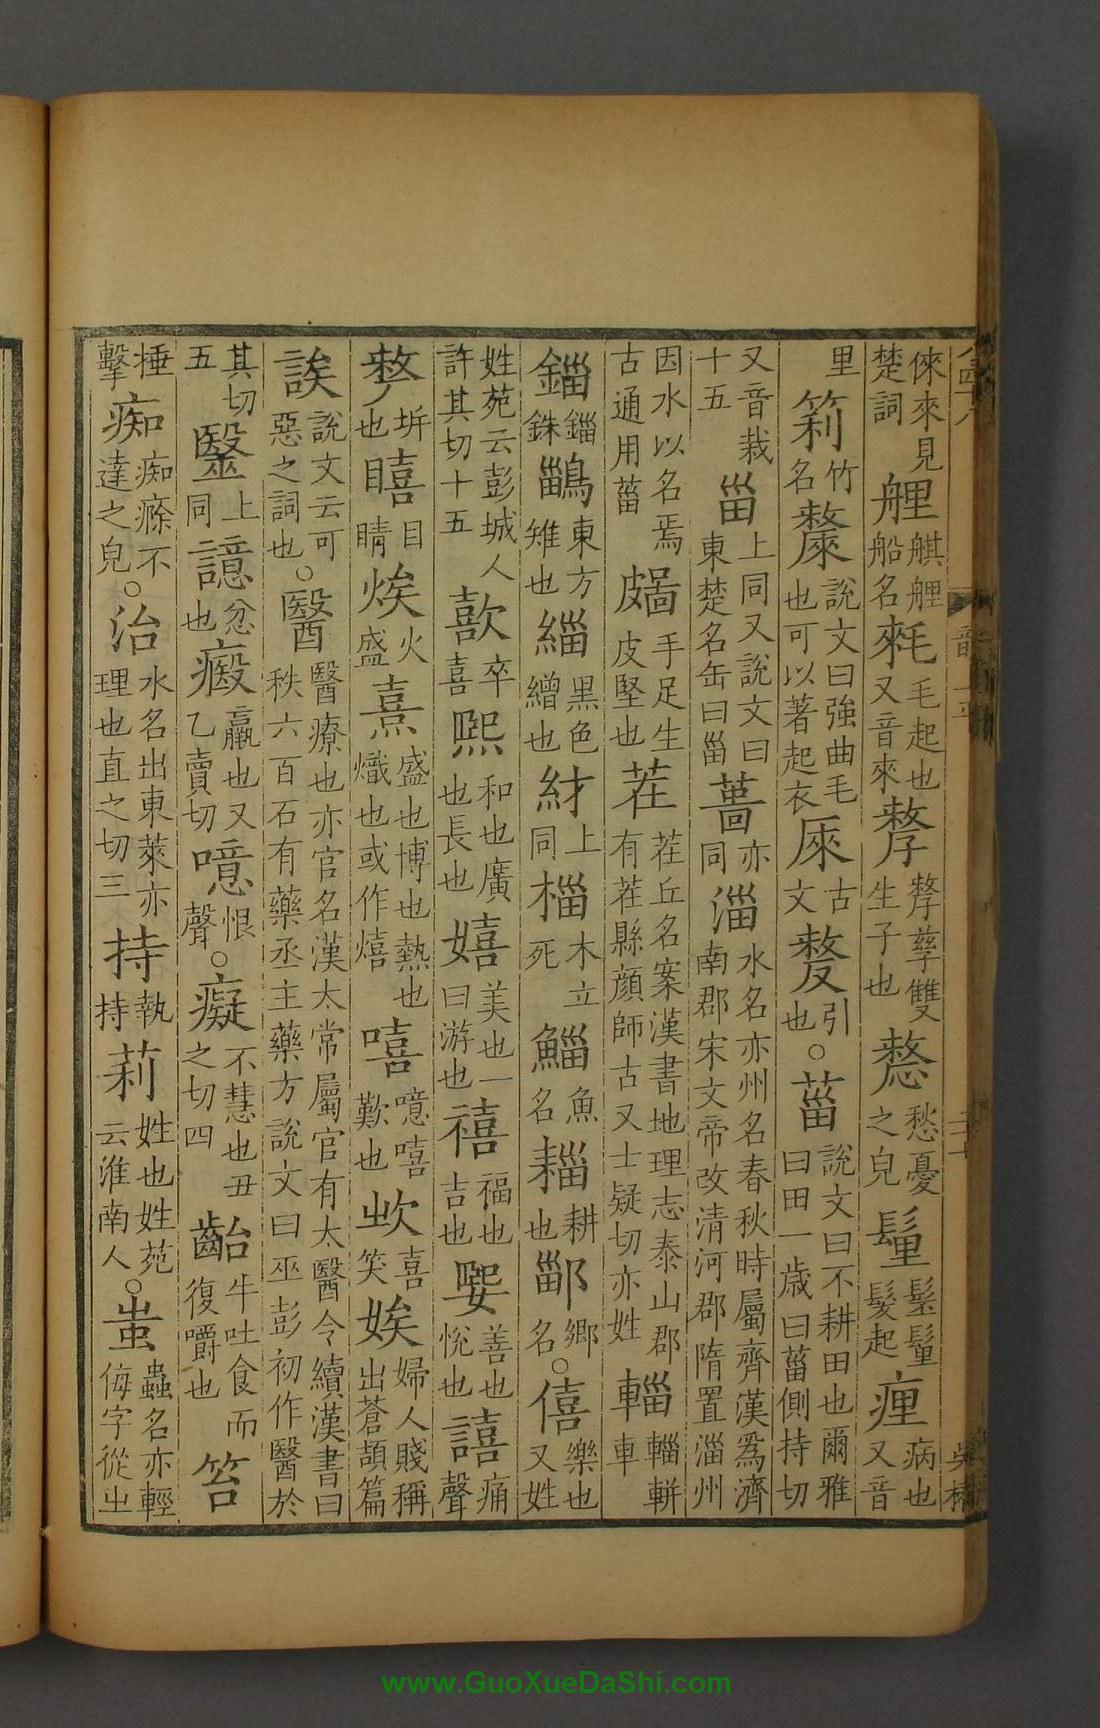 倈來見楚詞艃䑴艃船名𣯤毛起也又音來孷孷孳雙生子也𢟤愁憂之皃𩭇髤𩭇髮起㾖病也又音
里䔁竹名氂說文曰強曲毛也可以著起衣𠩺古文𠭰引也○菑說文曰不耕田也爾雅曰田一歲曰菑側持切
又音栽十五甾上同又說文曰東楚名缶曰甾葘亦同淄水名亦州名春秋時屬齊漢爲濟南郡宋文帝改清河郡隋置淄州
因水以名焉古通用菑𤿎手足生皮堅也茬茬丘名案漢書地理志泰山郡有茬縣顏師古又士疑切亦姓輜輜軿車
錙錙銖鶅東方雉也緇黑色繒也紂上同椔木立死鯔魚名䎩耕也鄑鄉名○僖樂也又姓
姓苑云彭城人許其切十五歖卒喜熙和也廣也長也嬉美也一曰游也禧福也吉也㜯善也悅也譆痛聲
𠩺坼也瞦目睛𤈦火盛熹盛也博也熱也熾也或作熺嘻噫嘻歎也㰞喜笑娭婦人賤稱出蒼頡篇
誒說文云可惡之詞也○醫醫療也亦官名漢太常屬官有太醫令續漢書曰秩六百石有藥丞主藥方說文曰巫彭初作醫於
其切五毉上同譩忿也㿄羸也又乙賣切噫恨聲○癡不慧也丑之切四齝牛吐食而復嚼也笞
捶擊痴痴㾢不達之皃○治水名出東萊亦理也直之切三持執持莉姓也姓苑云淮南人○蚩蟲名亦輕侮字從㞢
www.GuoXueDaShi.com